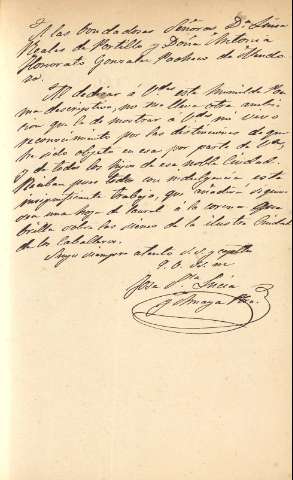 A las bondadosas Señoras Dª Luisa
Reales de Portillo y Doña Antonia
Honorato Gonzalez Pacheco de Mendo
za.
Al dedicar á Vdes este humilde Poe
ma descriptivo, no me lleva otra ambi
cion que la de mostrar á Vdes mi vivo
reconocimiento por las distinciones de que
he sido objeto en esa por parte de Vdes,
y de todos los hijos de esa noble Ciudad.
Reciban pues todos con indulgencia este
insignificante trabajo, que añadirá siquie
ra una hoja de laurel á la corona que
brilla sobre las sienes de la ilustre Ciudad
de los Caballeros.
Suyo siempre atento s.s. y capellan
q. b. sus
José Sta Lucía
y Amaya